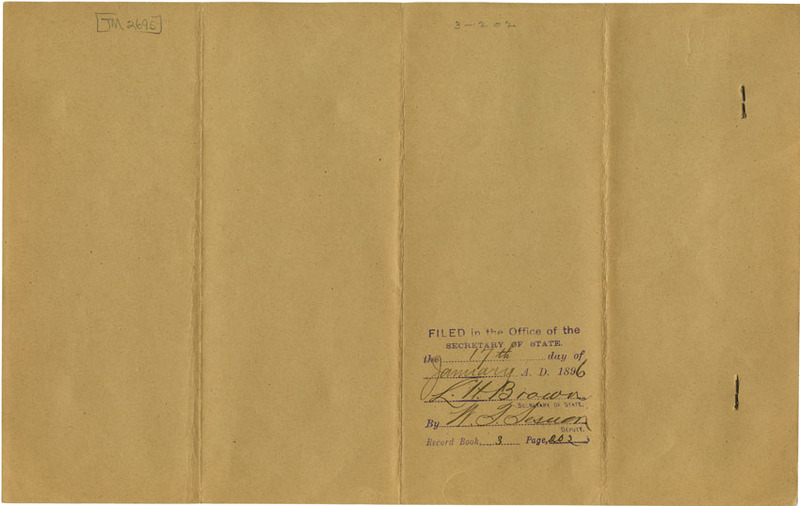 JM 2695
3-202
FILED in the Office of the
SECRETARY OF STATE.
the 17th day of
January A. D. 1896
L. H. Brown
SECRETARY OF STATE.
By W. F.
DEPUTY.
Record Book, 3 Page, 202